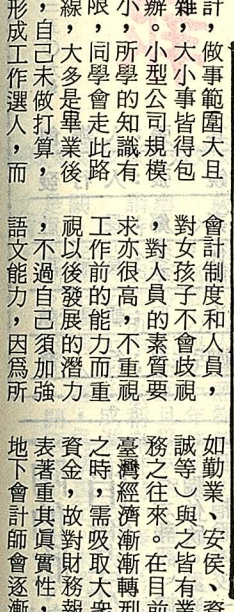 計，做事範圍大且
雜，大小事皆得包
辦。小型公司規模
小，所學的知識有
限，同學會走此路
線，大多是畢業後
，自己未做打算，
形成工作選人，而
會計制度和人員，
對女孩子不會歧視
，對人員的素質要
求亦很高，不重視
工作前的能力而重
視以後發展的潛力
，不過自己須加強
語文能力，因爲所
如勤業、安侯、
誠等）與之皆有業
務之往來。在目前
臺灣經濟漸漸轉型
之時，需吸取大衆
資金，故對財務報
表著重其眞實性，
地下會計師會逐漸